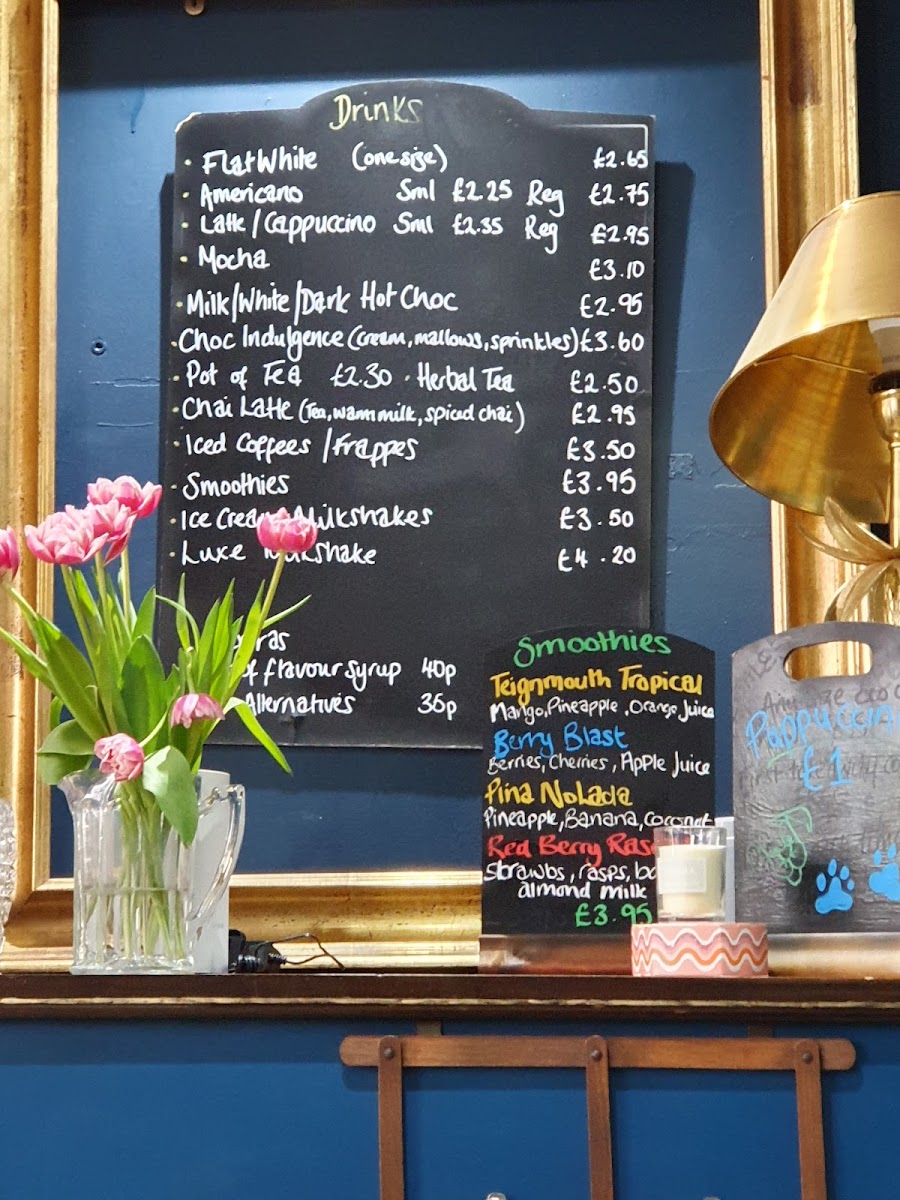 Drinks
· Flat White (one size) £2.65
· Americano Sml £2.25 Reg £2.75
· Latte/Cappuccino Sml £2.35 Reg £2.95
· Mocha £3.10
· Milk/White/Dark Hot Choc £2.95
· Choc Indulgence (cream, mallows, sprinkles) £3.60
· Pot of Tea £2.30 · Herbal Tea £2.50
· Chai Latte (Tea, warm milk, spiced chai) £2.95
· Iced Coffees / Frappes £3.50
· Smoothies £3.95
· Ice Cream Milkshakes £3.50
· Luxe Milkshake £4.20
flavour syrup 40p
Alternatives 35p
Smoothies
Teignmouth Tropical
Mango, Pineapple, Orange Juice
Berry Blast
Berries, Cherries, Apple Juice
Pina NoLada
Pineapple, Banana, Coconut
Red Berry
Strawbs, rasps,
almond milk
£3.95
Puppuccino
£1